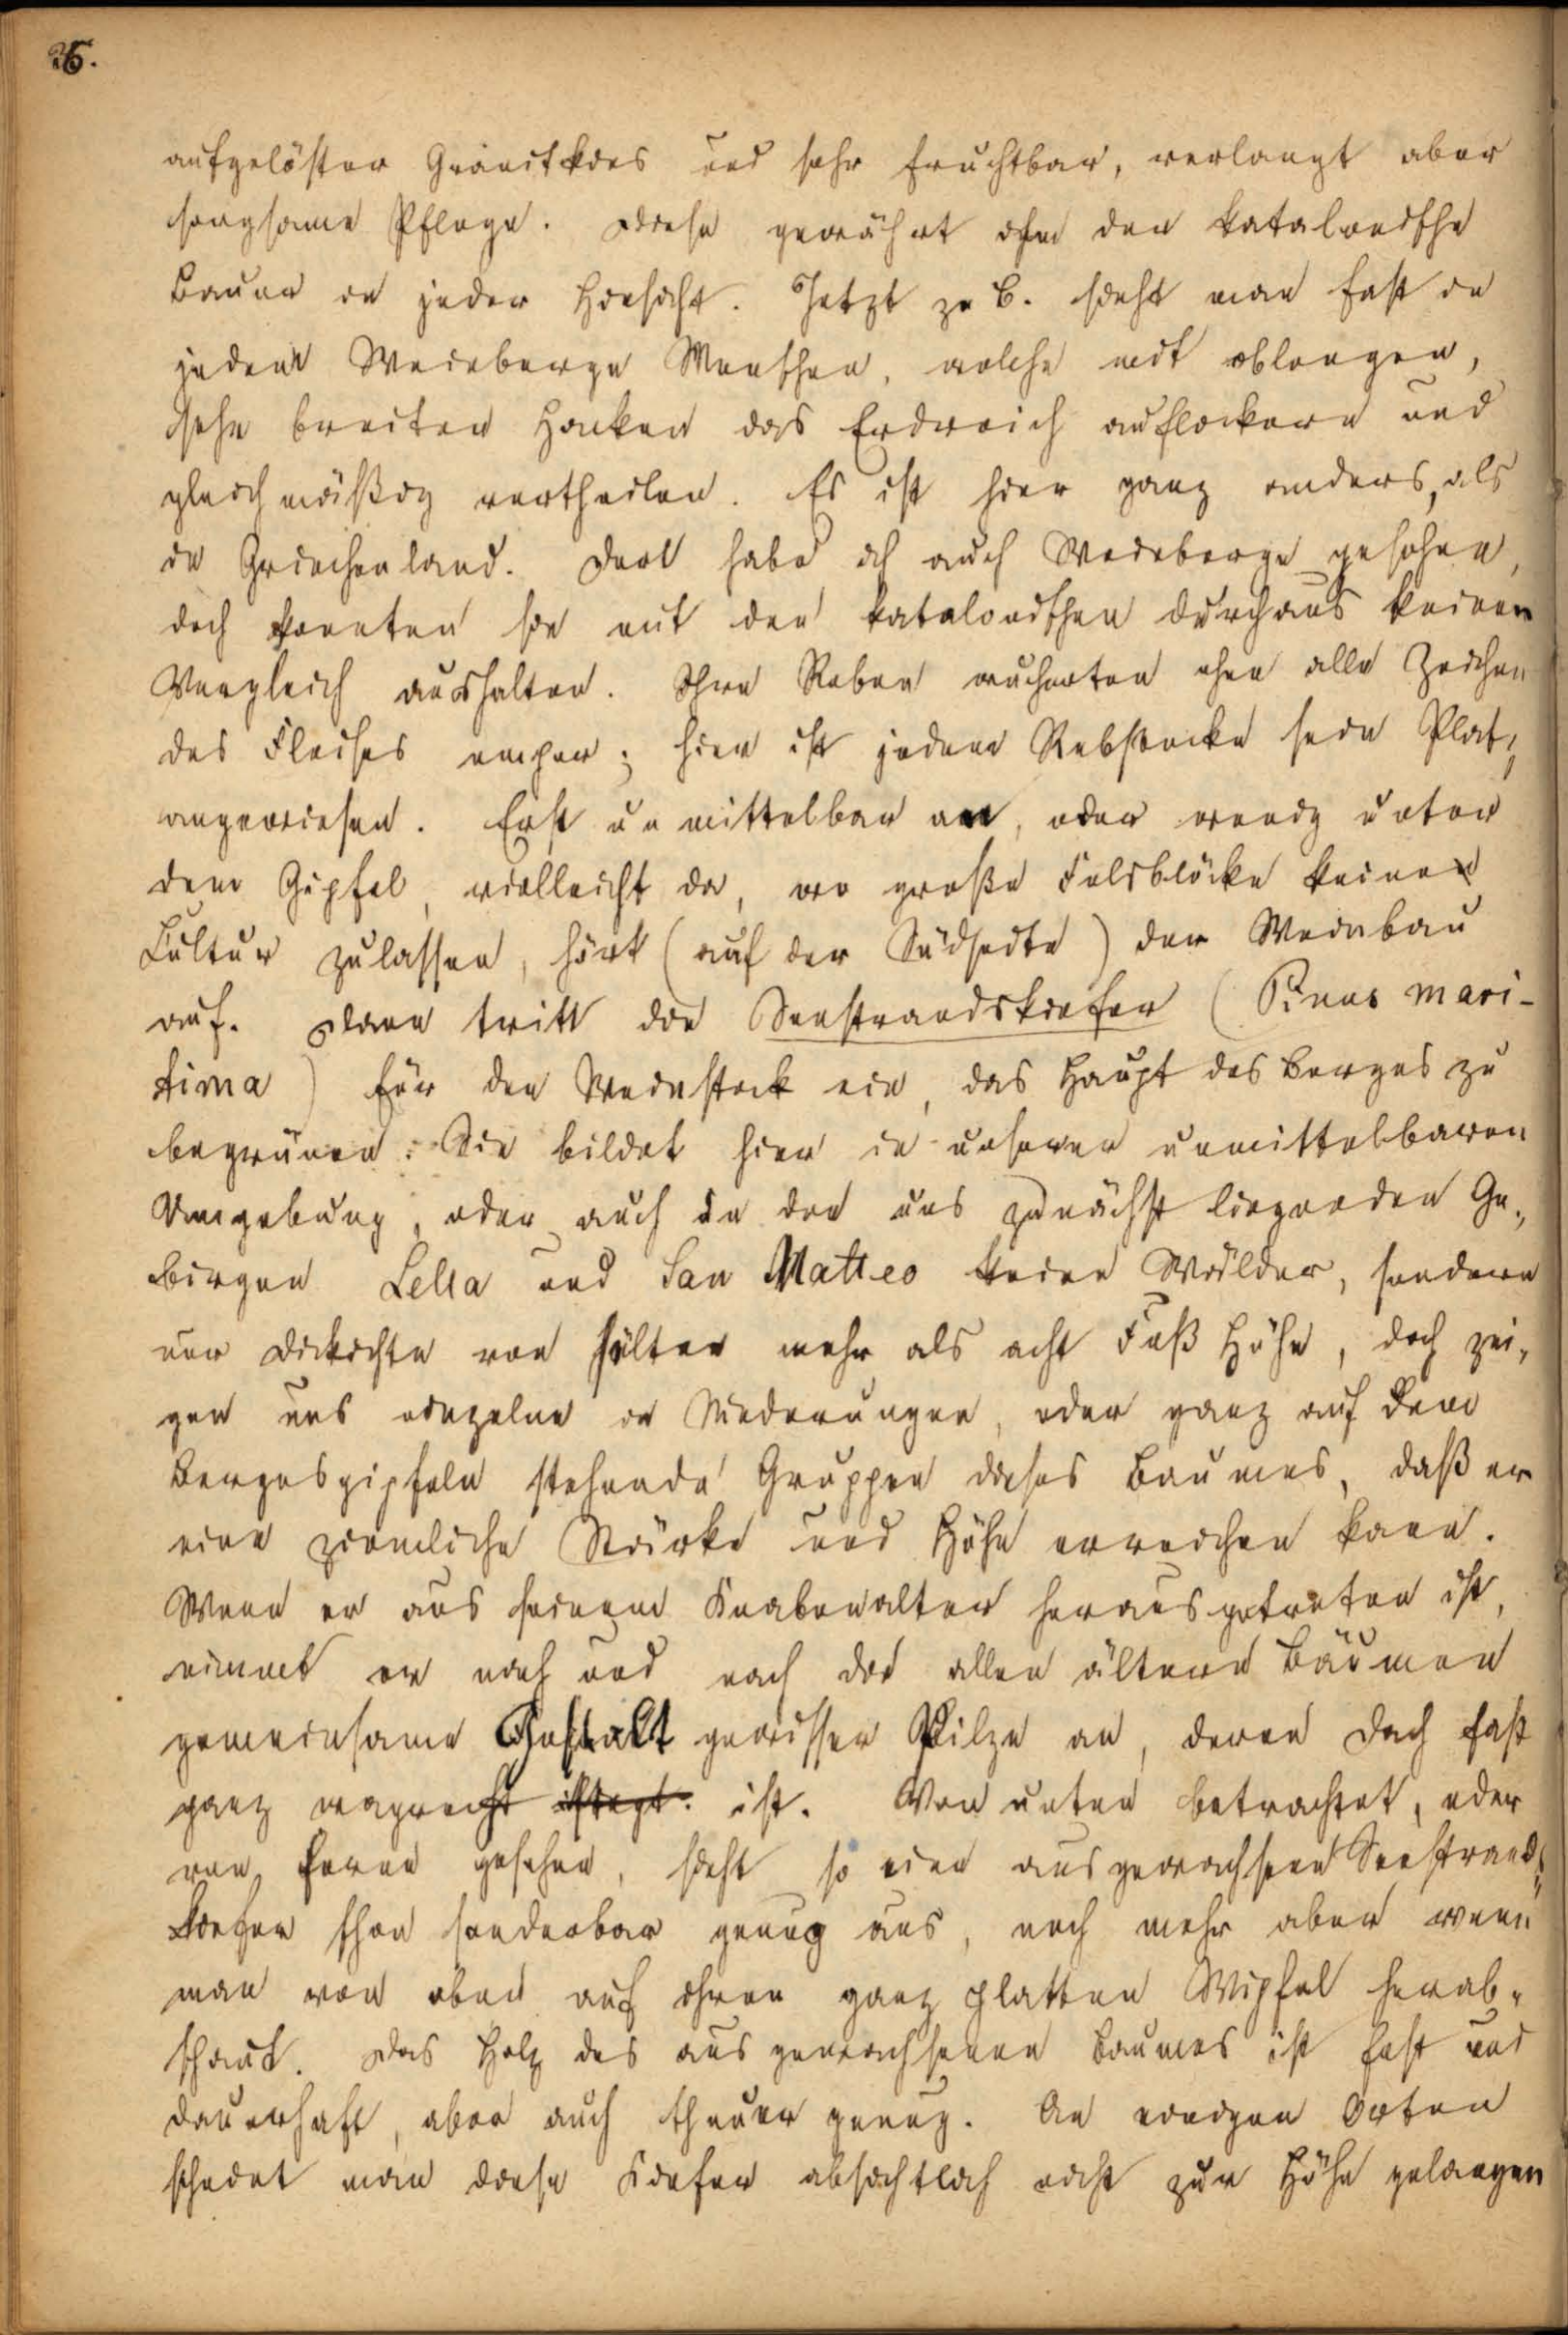 26.
aufgelöster Granitkies und sehr fruchtbar, verlangt aber
sorgsame Pflege. Diese gewährt ihm der katalonische
Bauer in jeder Hinsicht. Jetzt z. B. sieht man fast in
jedem Weinberge Menschen, welche mit oblongen,
sehr breiten Hacken das Erdreich auflockern und
gleichmäßig vertheilen. Es ist hier ganz anders, als
in Griechenland. Dort habe ich auch Weinberge gesehen,
doch konnten sie mit den katalonischen durchaus keinen
Vergleich aushalten. Ihre Reben wucherten ohne alle Zeichen
des Fleißes empor; hier ist jedem Rebstocke sein Platz
angewiesen. Erst unmittelbar am, oder wenig unter
dem Gipfel, vielleicht da, wo große Felsblöcke keine
Cultur zulassen, hört (auf der Südseite) der Weinbau
auf. Dann tritt die Seestrandskiefer (Pinus mari-
tima) für den Weinstock ein, das Haupt des Berges zu
begrünen. Sie bildet hier in unserer unmittelbaren
Umgebung, oder auch in den uns zunächst liegenden Ge-
birgen Lella und San Matteo keine Wälder, sondern
nur Dickichte von selten mehr als acht Fuß Höhe, doch zei-
gen uns einzelne in Niederungen, oder ganz auf den
Bergesgipfeln stehende Gruppen dieses Baumes, daß er
eine ziemliche Stärke und Höhe erreichen kann.
Wenn er aus seinem Knabenalter herausgetreten ist,
nimmt er nach und nach die allen ältern Bäumen
gemeinsame Gestalt gewisser Pilze an, deren Dach fast
ganz wagrecht ist. Von unten betrachtet, oder
von ferne gesehen, sieht so eine ausgewachsene Seestrands-
kiefer schon sonderbar genug aus, noch mehr aber wenn
man von oben auf ihren ganz platten Wipfel herab-
schaut. Das Holz des ausgewachsenen Baumes ist fest und
dauerhaft, aber auch theuer genug. An einigen Orten
scheint man diese Kiefer absichtlich nicht zur Höhe gelangen